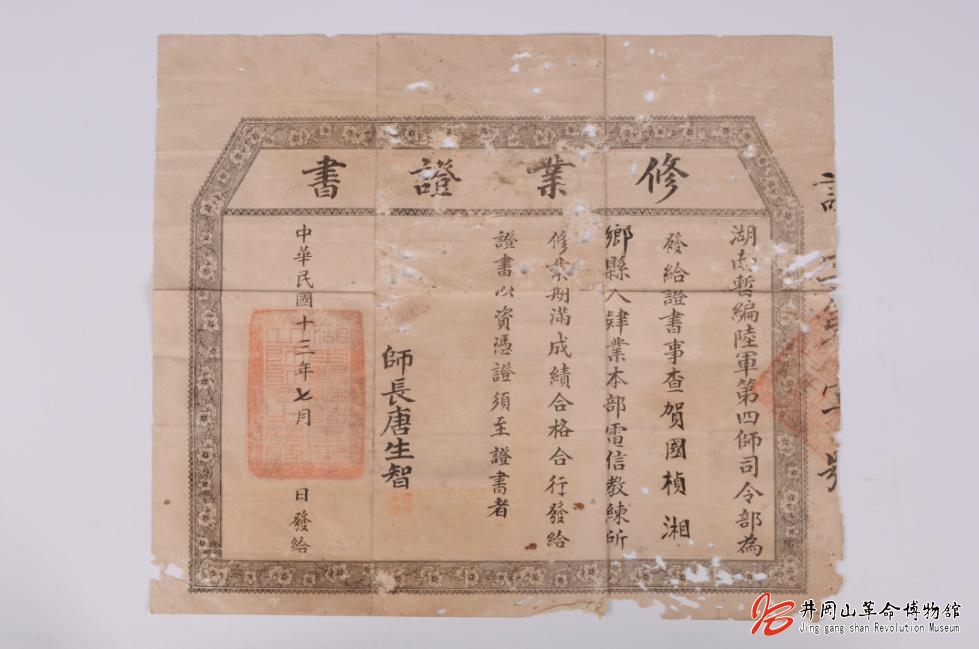 修業證書
湖南暫編陸軍第四師司令部為
發給證書事查賀國楨 湘
鄉縣人肄業本部電信教練所
修業期滿成績合格合行發給
證書以資憑證須至證書者
師長唐生智
中華民國十三年七月 日發給
號
井冈山革命博物館
Jing gang shan Revolution Museum